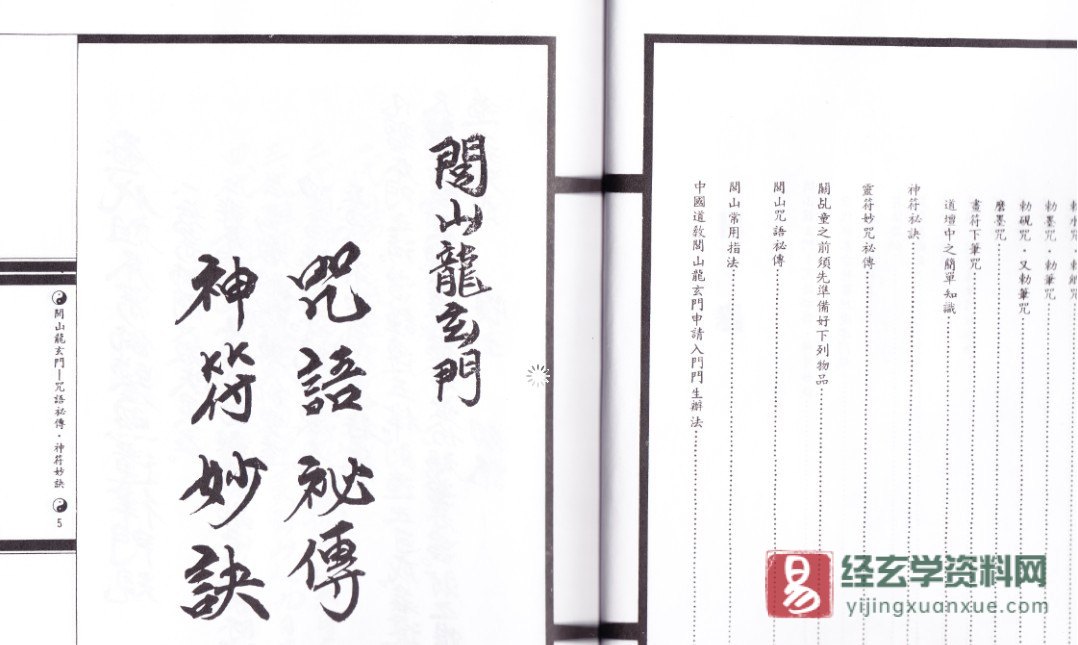 勅墨咒·勅筆咒
勅硯咒·又勅筆咒
磨墨咒
畫符下筆咒
道壇中之簡單知識
神符祕訣
靈符妙咒祕傳
關乩童之前須先準備好下列物品
閭山咒語祕傳
閭山常用指法
中國道教閭山龍玄門申請入門門生辦法
閭山龍玄門
咒語祕傳
神符妙訣
閭山龍玄門—咒語祕傳·神符妙訣
5
易
经玄学资料网
yijingxuanxue.com